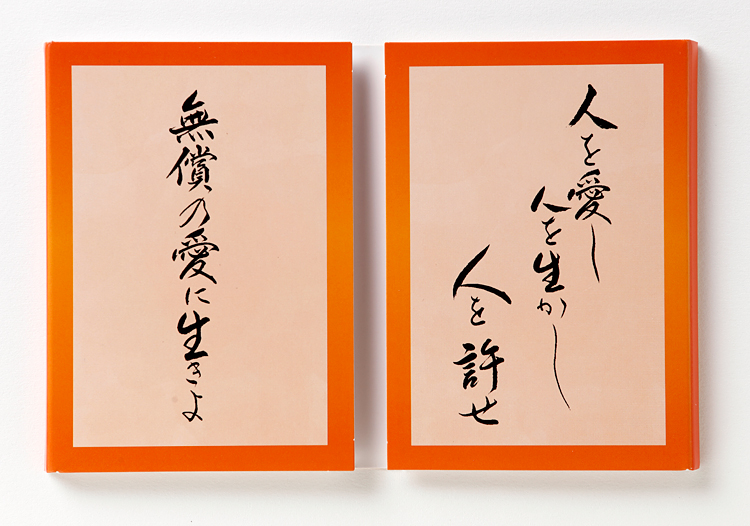 人を愛し
人を生かし
人を許せ
無償の愛に生きよ